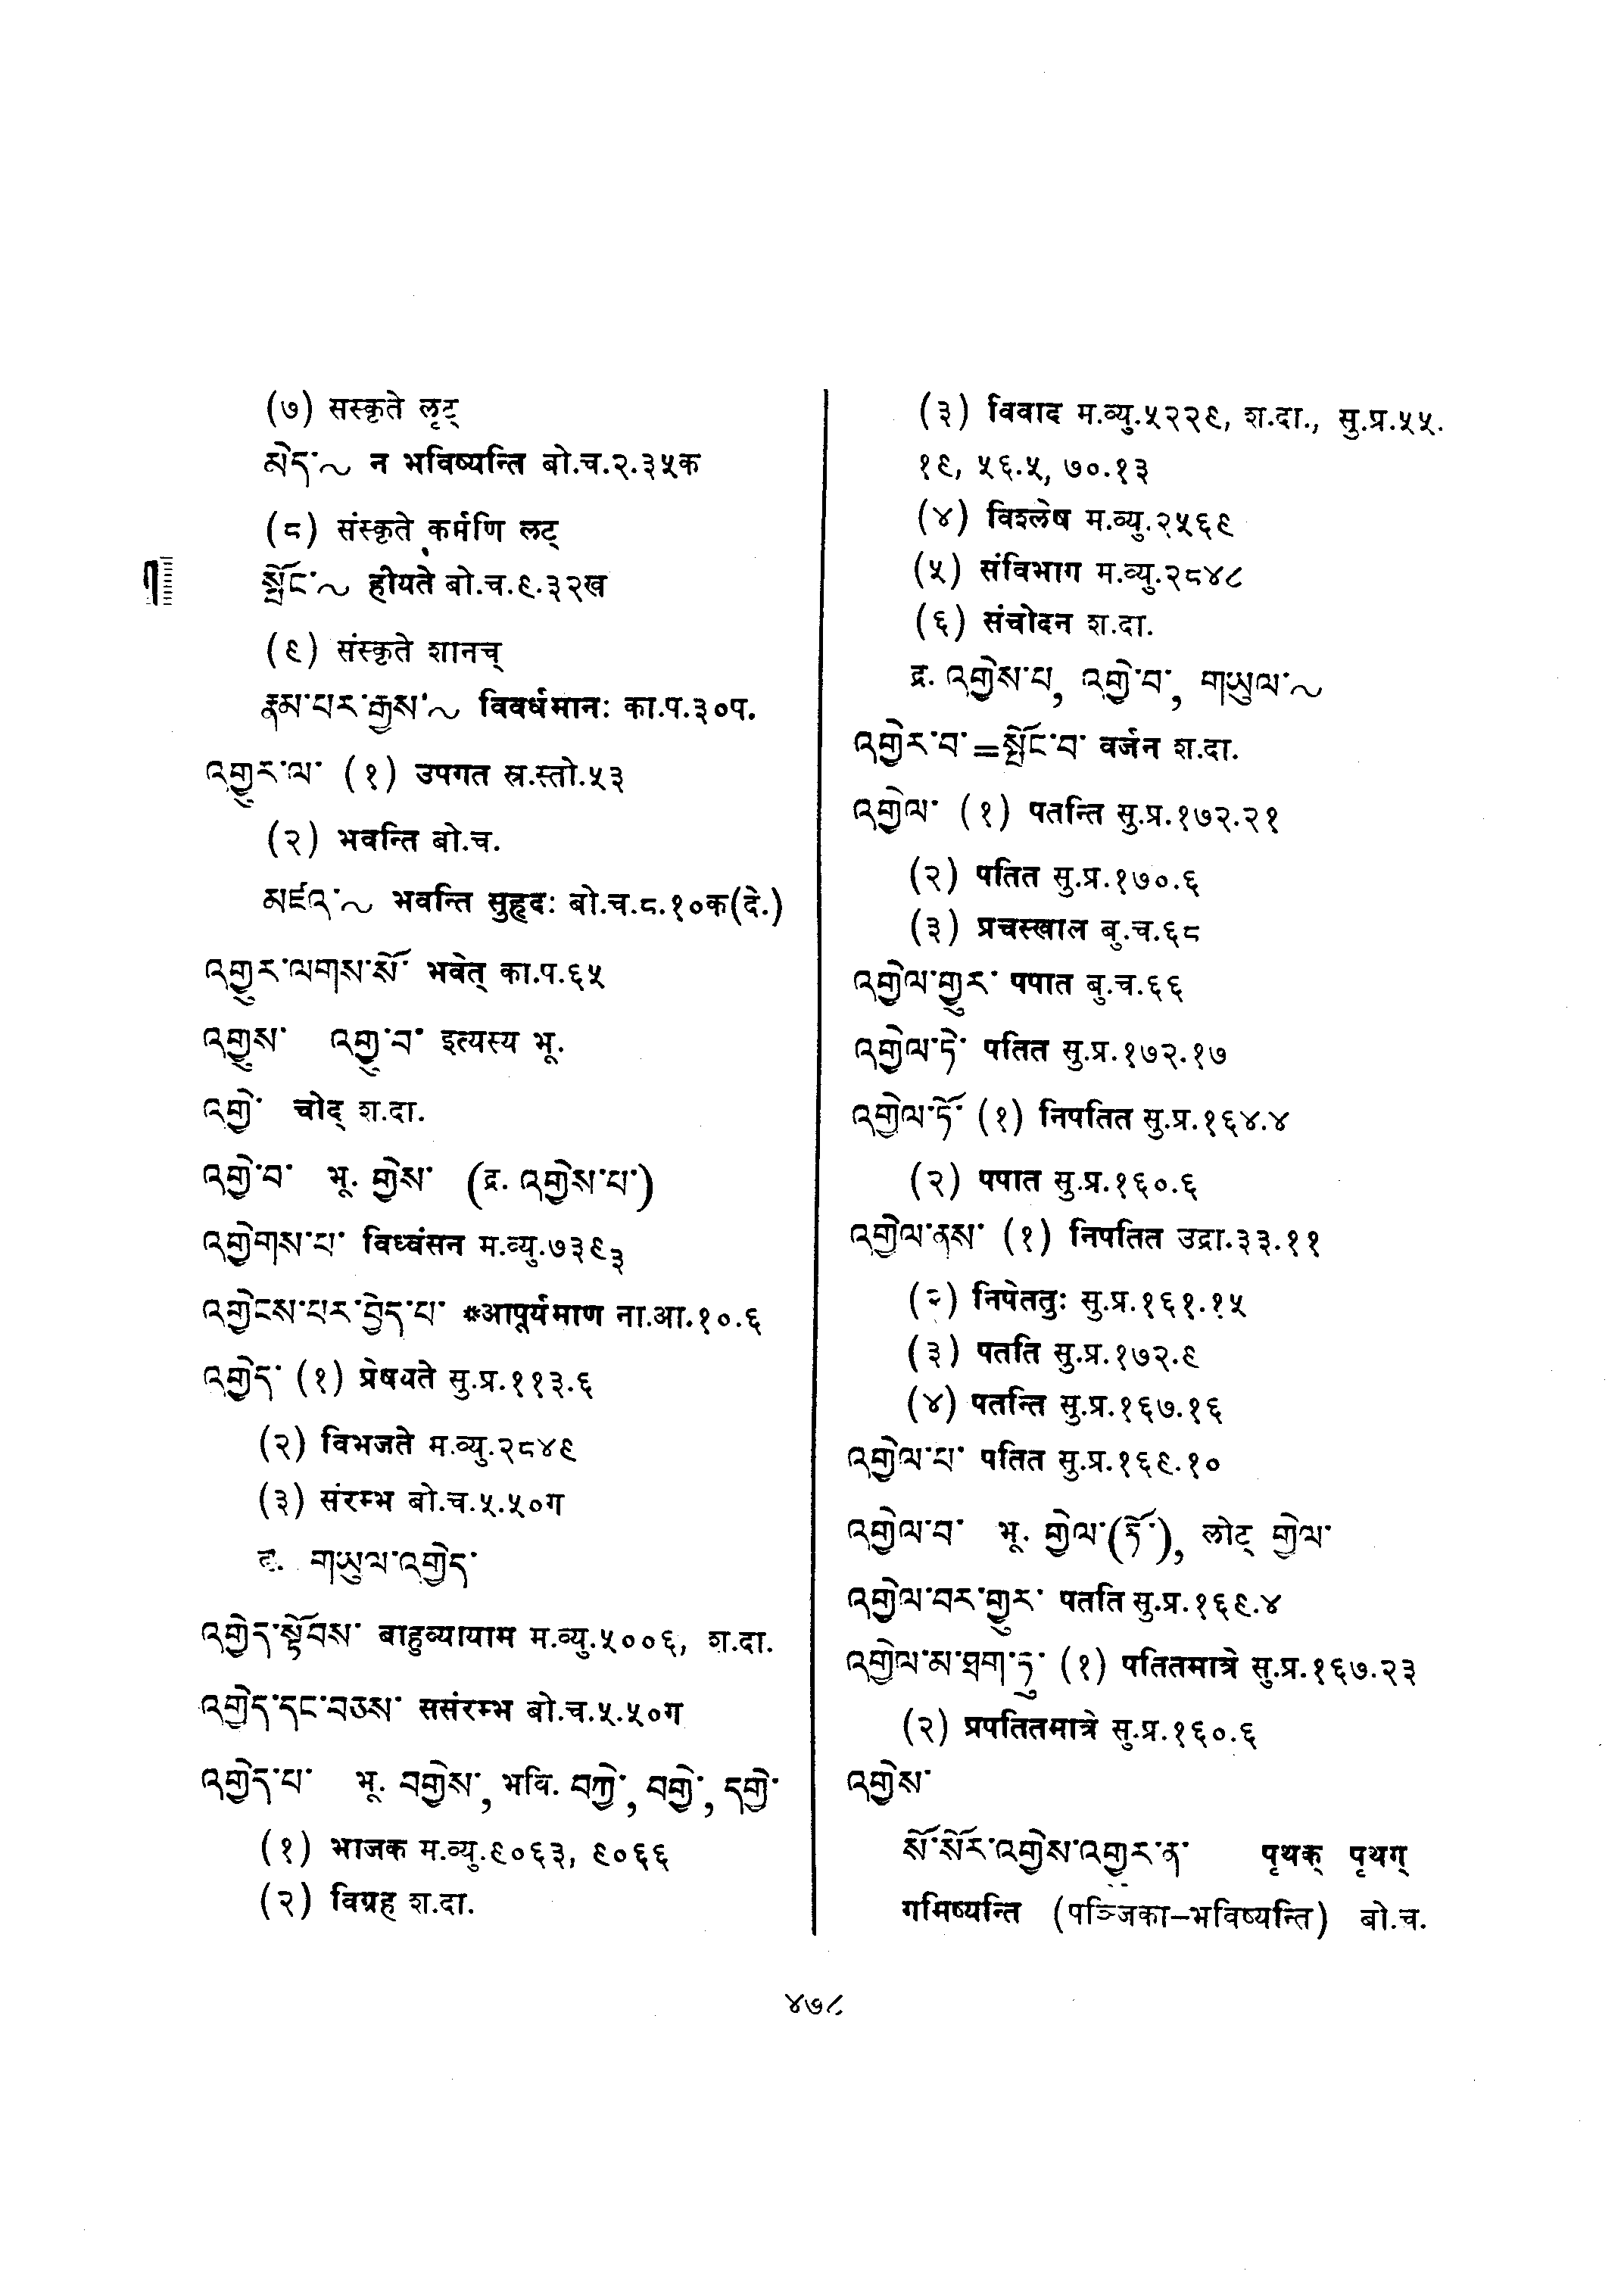 (७) सस्कृते लृट्
མེད་~ न भविष्यन्ति बो.च.२.३५क
(८) संस्कृते कर्मणि लट्
སྤོང་~ हीयते बो.च.९.३२ख
(९) संस्कृते शानच्
རྣམ་པར་རྒྱས་~ विवर्धमानः का.प.३०प.
འགྱུར་ལ་ (१) उपगत स्र.स्तो.५३
(२) भवन्ति बो.च.
མཛའ་~ भवन्ति सुहृदः बो.च.८.१०क(दे.)
འགྱུར་ལགས་སོ་ भवेत् का.प.६५
འགྱུས་ འགྱུ་བ་ इत्यस्य भू.
འགྱེ་ चोद् श.दा.
འགྱེ་བ་ भू. གྱེས་ (द्र. འགྱེས་པ་)
འགྱེགས་པ་ विध्वंसन म.व्यु.७३९३
འགྱེངས་པར་བྱེད་པ་ *आपूर्यमाण ना.आ.१०.६
འགྱེད་ (१) प्रेषयते सु.प्र.११३.६
(२) विभजते म.व्यु.२८४९
(३) संरम्भ बो.च.५.५०ग
द्र. གཡུལ་འགྱེད་
འགྱེད་སྟོབས་ बाहुव्यायाम म.व्यु.५००६, श.दा.
འགྱེད་དང་བཅས་ ससंरम्भ बो.च.५.५०ग
འགྱེད་པ་ भू. བགྱེས་, भवि. བཀྱེ་, བགྱེ་, དགྱེ་
(१) भाजक म.व्यु.९०६३, ९०६६
(२) विग्रह श.दा.
(३) विवाद म.व्यु.५२२९, श.दा., सु.प्र.५५.
१९, ५६.५, ७०.१३
(४) विश्लेष म.व्यु.२५६९
(५) संविभाग म.व्यु.२८४८
(६) संचोदन श.दा.
द्र. འགྱེས་པ, འགྱེ་བ་, གཡུལ་~
འགྱེར་བ་=སྤོང་བ་ वर्जन श.दा.
འགྱེལ་ (१) पतन्ति सु.प्र.१७२.२१
(२) पतित सु.प्र.१७०.६
(३) प्रचस्खाल बु.च.६८
འགྱེལ་གྱུར་ पपात बु.च.६६
འགྱེལ་ཏེ་ पतित सु.प्र.१७२.१७
འགྱེལ་ཏོ་ (१) निपतित सु.प्र.१६४.४
(२) पपात सु.प्र.१६०.६
འགྱེལ་ནས་ (१) निपतित उद्रा.३३.११
(२) निपेततुः सु.प्र.१६१.१५
(३) पतति सु.प्र.१७२.९
(४) पतन्ति सु.प्र.१६७.१६
འགྱེལ་པ་ पतित सु.प्र.१६९.१०
འགྱེལ་བ་ भू. གྱེལ་(ཏོ་), लोट् གྱེལ་
འགྱེལ་བར་གྱུར་ पतति सु.प्र.१६९.४
འགྱེལ་མ་ཐག་ཏུ་ (१) पतितमात्रे सु.प्र.१६७.२३
(२) प्रपतितमात्रे सु.प्र.१६०.६
འགྱེས་
སོ་སོར་འགྱེས་འགྱར་ན་ पृथक् पृथग्
गमिष्यन्ति (पञ्जिका–भविष्यन्ति) बो.च.
४७८